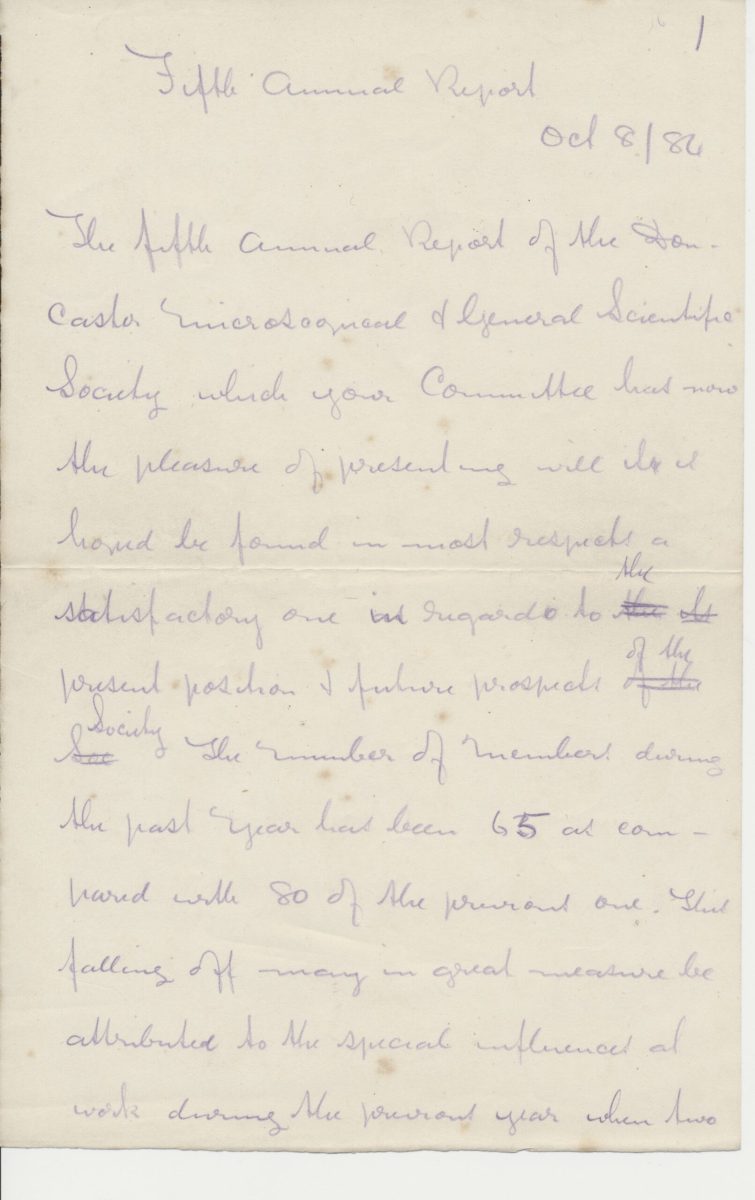 1
Fifth Annual Report
Oct 8/86
The fifth Annual Report of the Don-
caster Microscopical & General Scientific
Society which your Committee has now
the pleasure of presenting will it is
hoped be found in most respects a
the
satisfactory one in regard to the its
of the
present position & future prospects of the
Society
Soc The Number of Members during
the past Year has been 65 as com-
pared with 80 of the previous one. This
falling off may in great measure be
attributed to the special influences at
work during the previous year when two